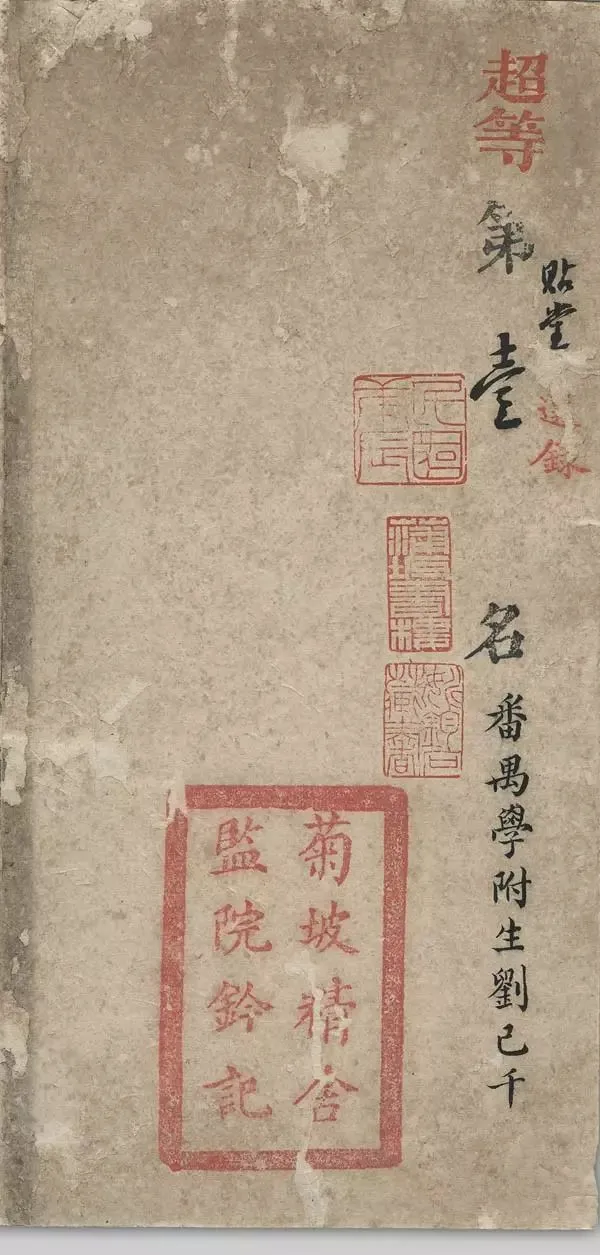 超等
第壹名
貼堂
錄
番禺學附生劉已千
菊坡精舍
監院鈐記